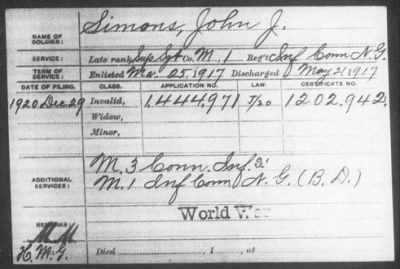 Simons, John J.
NAME OF SOLDIER:
SERVICE: Late rank Sup Sgt Co. M. 1 Reg't Inf Conn N.G.
TERM OF SERVICE: Enlisted Mar. 25, 1917 Discharged May 2, 1917
DATE OF FILING. CLASS. APPLICATION NO. LAW. CERTIFICATE NO.
1920 Dec 29 Invalid, 1444971 1202942.
Widow,
Minor,
M. 3 Conn. Inf. &
ADDITIONAL SERVICES: M. 1 Inf Conn N. G. (B. D.)
World War
REMARKS:
H. M. G.
Died , 1 , at